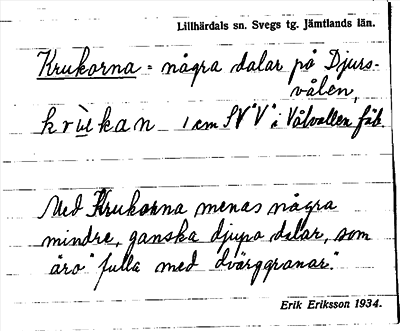 Lillhärdals sn. Svegs tg. Jämtlands län.
Krukorna = några dalar på Djurs-
vålen,
krùkan 1 cm SV "V" i Vålvallen fäb.
Med Krukorna menas några
mindre, ganska djupa dalar, som
äro "fulla med dvärggranar."
Erik Eriksson 1934.